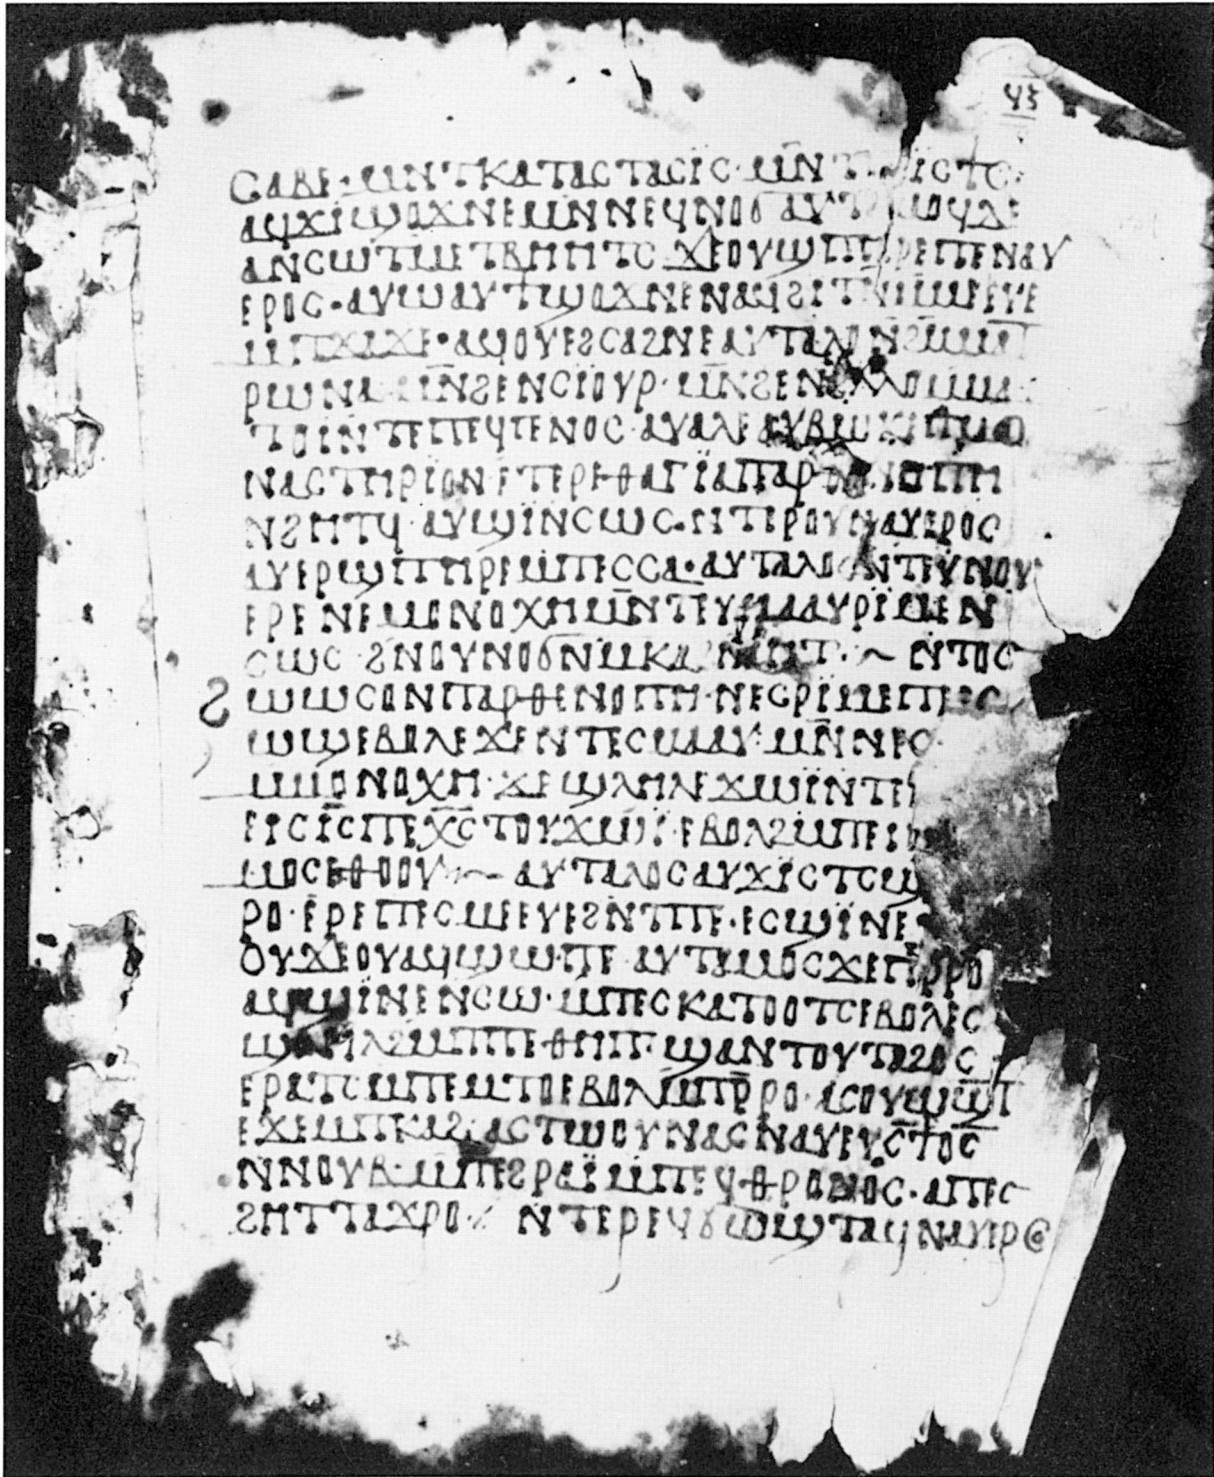 ϤⲜ
ⲤⲀⲂⲈ·ⲘⲚⲦⲔⲀⲦⲀⲤⲦⲀⲤⲒⲤ·ⲘⲚ
ⲀϤϪⲒϢⲞϪⲚⲈⲘⲚⲚⲈϤⲚⲞϬ
ⲀⲚⲤⲰⲦⲘⲈⲦⲂⲎⲎⲦⲤ·ϪⲈⲞⲨϢⲠⲎⲢⲈⲦⲈⲚⲀⲨ
ⲈⲢⲞⲤ·ⲀⲨⲰⲀⲨϮϢⲞϪⲚⲈⲚⲀϤϨⲒⲦⲚⲠⲘⲈⲈⲨⲈ
ⲘⲠϪⲀϪⲈ·ⲀϤⲞⲨⲈϨⲤⲀϨⲚⲈⲀⲨⲦⲀⲗⲞ
ⲢⲰⲚⲀ·ⲘⲚϨⲈⲚⲤⲒⲞⲨⲢ·ⲘⲚϨⲈⲚ
ⲦⲞⲒⲚⲦⲈⲠⲈϤⲄⲈⲚⲞⲤ·ⲀⲨⲀⲖⲈⲀⲨⲂⲰⲔⲈⲠⲘⲞ
ⲚⲀⲤⲦⲎⲢⲒⲞⲚⲈⲦⲈⲢⲈⲐⲀⲄⲒⲀⲠⲀⲢⲐⲈⲚⲞⲠⲎ
ⲚϨⲎⲦϤ·ⲀⲨⲰⲒⲚⲤⲰⲤ·ⲚⲦⲈⲢⲞⲨⲚⲀⲨⲈⲢⲞⲤ
ⲀⲨⲈⲢϢⲠⲎⲢⲈⲘⲠⲈⲤⲤⲀ·ⲀⲨⲦⲀⲖⲞⲤⲚⲦⲈⲨⲚⲞⲨ
ⲈⲢⲈⲚⲈⲘⲞⲚⲞⲬⲎⲘⲚⲦⲈⲨⲘⲀⲀⲨⲢⲒⲘⲈⲚ
ⲤⲰⲤ·ϨⲚⲞⲨⲚⲞϬⲚⲘⲔⲀϨⲚϨⲎⲦ·~ⲚⲦⲞⲤ
ϨⲰⲰⲤⲞⲚⲠⲀⲢⲐⲈⲚⲞⲠⲎ·ⲚⲈⲤⲢⲒⲘⲈⲠⲈ
ⲰϢⲈⲂⲞⲖⲈϪⲈⲚⲦⲈⲤⲘⲀⲀⲨ·ⲘⲚⲚⲈⲤ
ⲘⲞⲚⲞⲬⲎ·ϪⲈϢⲖⲎⲖⲈϪⲰⲒⲚⲦⲈ
ⲈⲒⲤⲒⲤⲠⲈⲬⲤⲦⲞⲨϪⲰⲒ·ⲈⲂⲞⲖϨⲘⲠⲈⲒ
ⲘⲞⲤⲈⲐⲞⲞⲨ~ⲀⲨⲦⲀⲖⲞⲤⲀⲨϪⲒⲤⲦⲤϢ
ⲢⲞ·ⲈⲢⲈⲠⲈⲤⲘⲈⲈⲨⲈϨⲚⲦⲠⲈ·ⲈⲤϢⲒⲚⲈ
ⲞⲨϪⲈⲞⲨⲀϤϢⲰⲠⲈ·ⲀⲨⲦⲀⲘⲞⲤϪⲈⲠⲢⲢⲞ
ⲀϤϢⲒⲚⲈⲚⲤⲰ·ⲘⲠⲈⲤⲔⲀⲦⲞⲞⲦⲤⲈⲂⲞⲖⲈⲤ
ϢⲖⲎⲖϨⲘⲠⲠⲈⲐⲎⲠ·ϢⲀⲚⲦⲞⲨⲦⲀϨⲞⲤ
ⲈⲢⲀⲦⲤⲘⲠⲈⲘⲦⲞⲈⲂⲞⲖⲘⲠⲢⲢⲞ·ⲀⲤⲞⲨⲰϢⲦ
ⲈϪⲈⲘⲠⲔⲀϨ·ⲀⲤⲦⲰⲞⲨⲚⲀⲤⲚⲀⲨⲈⲨⲤϮⲞⲤ
ⲚⲚⲞⲨⲂ·ⲘⲠⲈϨⲢⲀⲒⲘⲠⲈϤⲐⲢⲞⲚⲞⲤ·ⲀⲠⲈⲤ
ϨⲎⲦⲦⲀϪⲢⲞ·ⲚⲦⲈⲢⲈϤϬⲰϢⲦⲀϤⲚⲀⲨⲈⲢⲞ